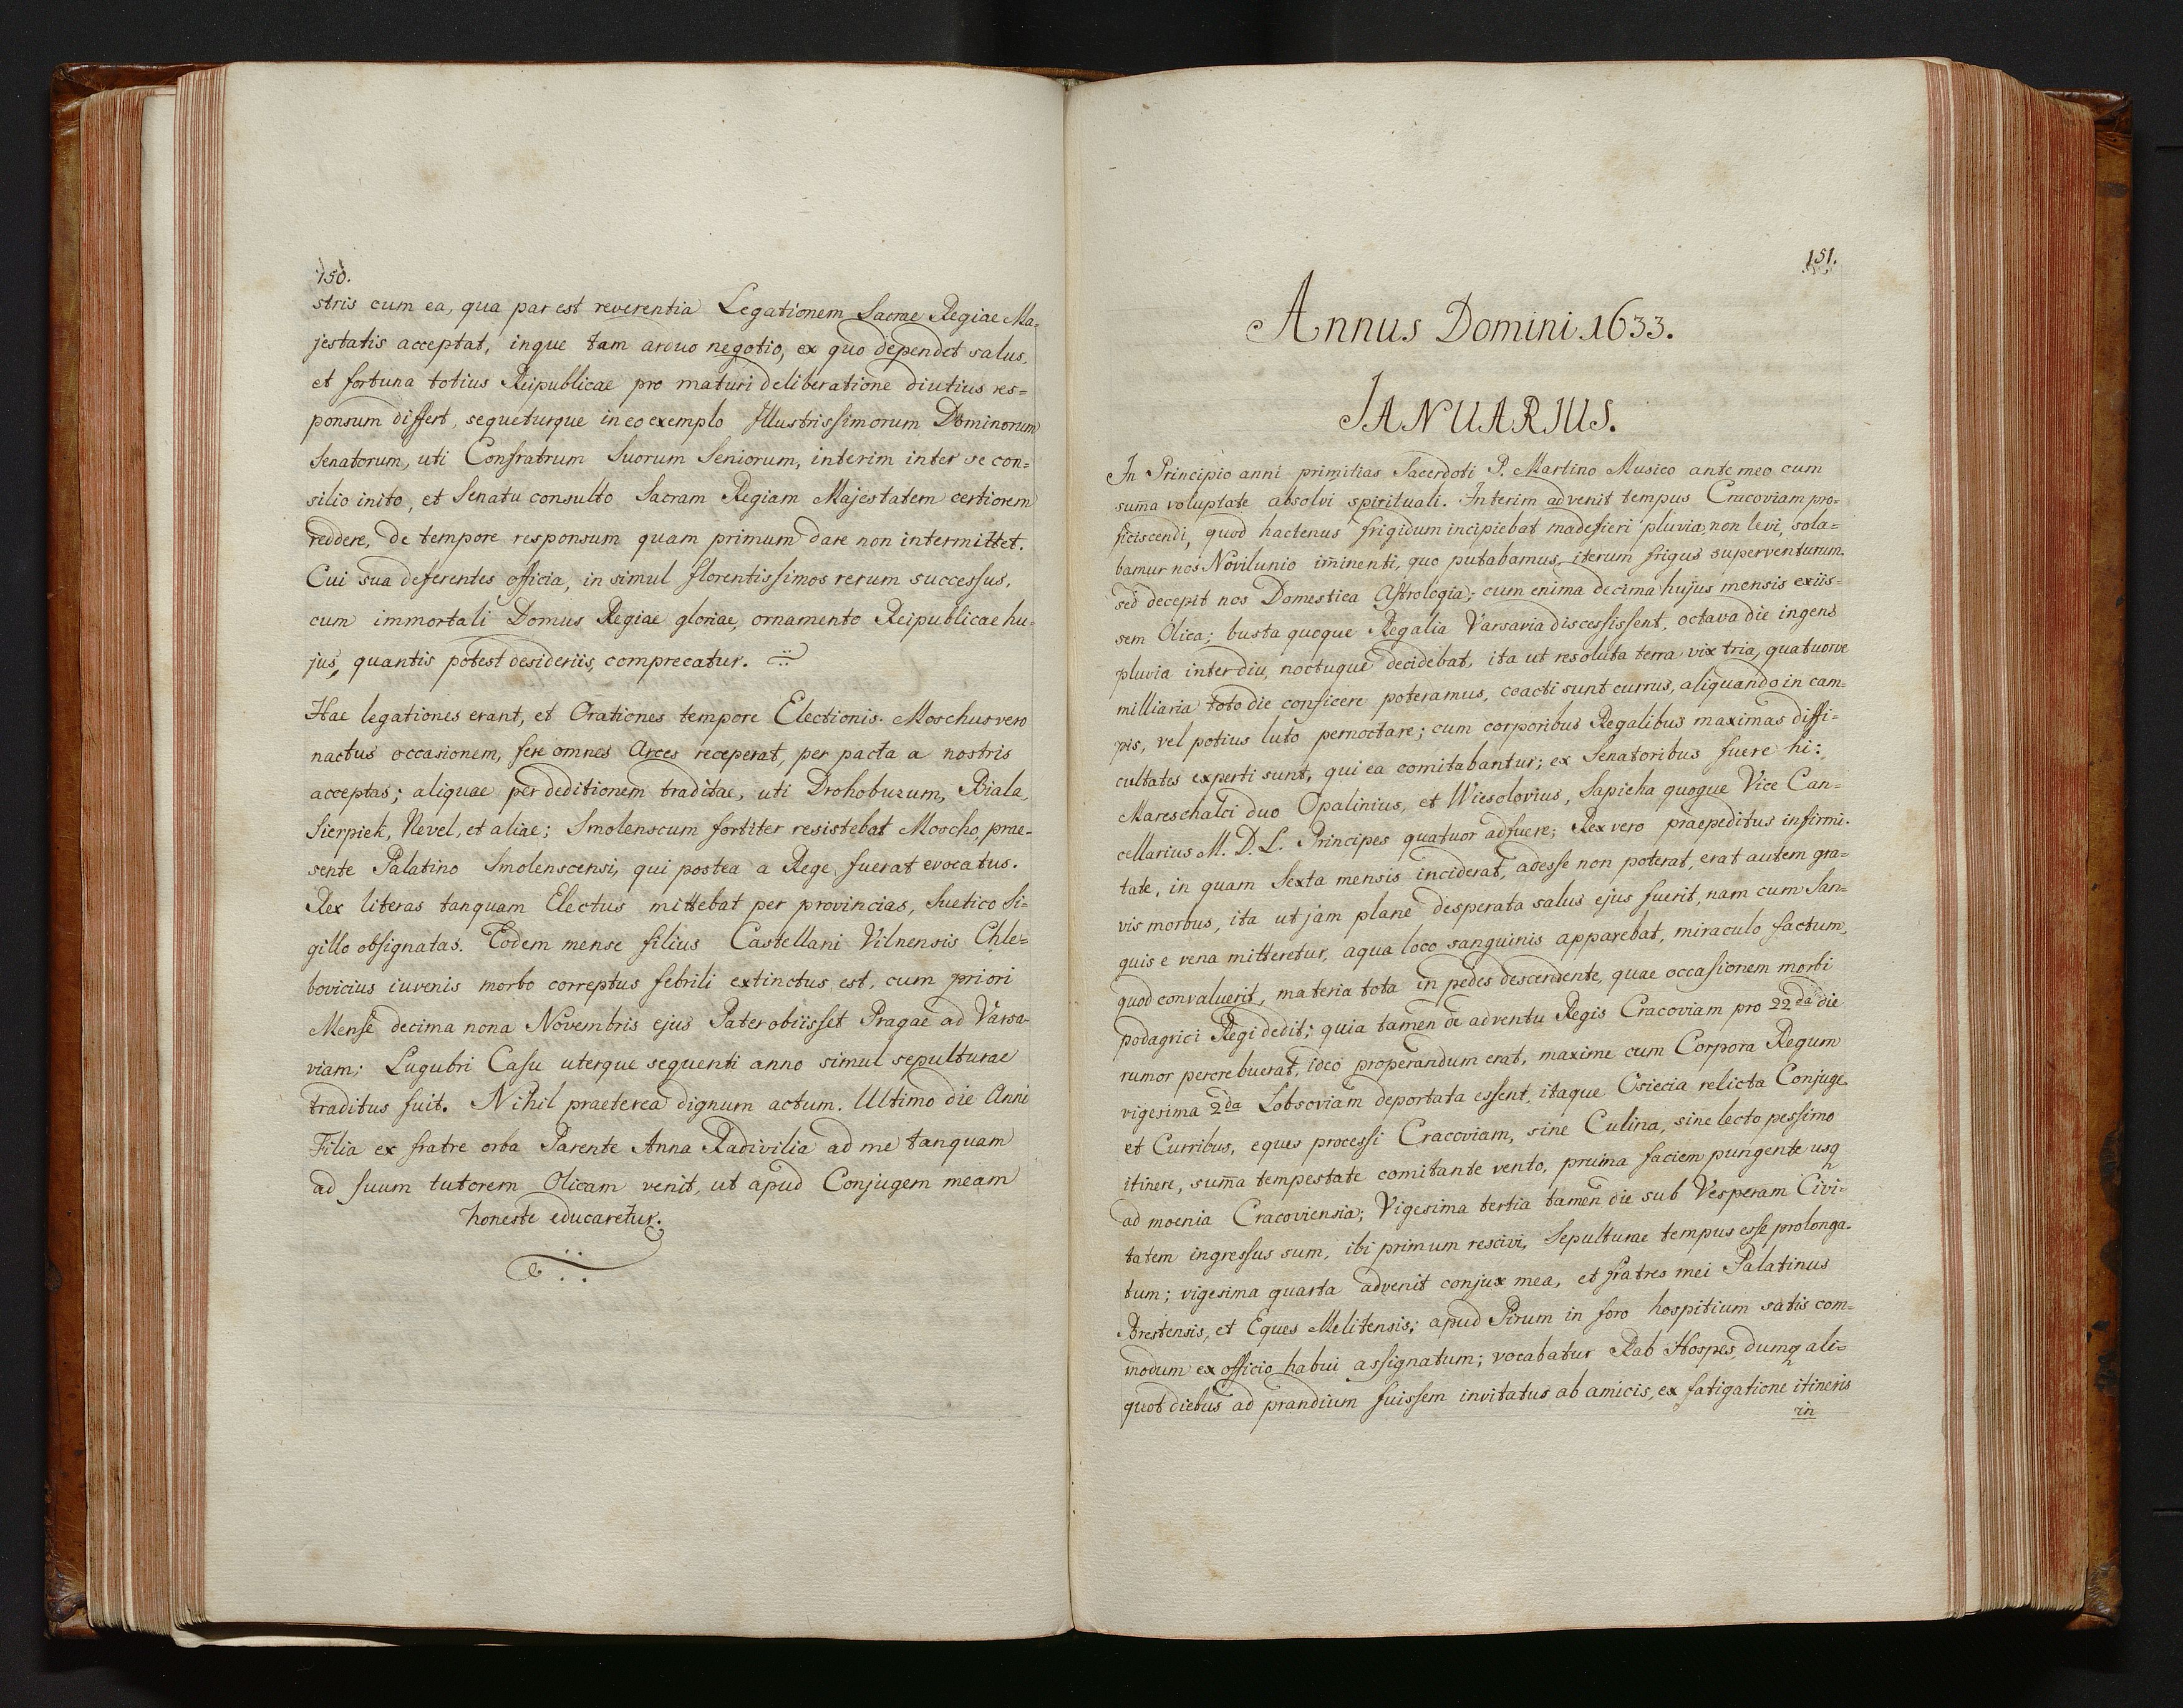 150.
stris cum ea, qua par est reverentia Legationem Sacrae Regiae Ma=
jestatis acceptat, inque tam arduo negotio, ex quo dependet salus,
et fortuna totius Reipublicae pro maturi deliberatione diutius res=
ponsum differt, sequeturque in eo exemplo Illustrissimorum Dominorum
Senatorum, uti Confratrum Suorum Seniorum, interim inter se con=
silio inito, et Senatu consulto Sacram Regiam Majestatem certiorem
reddere, de tempore responsum quam primum dare non intermittet.
Cui sua deferentes officia, in simul florentissimos rerum successus,
cum immortali Domus Regiae gloriae, ornamento Reipublicae hu=
jus, quantis potest desideriis, comprecatur.
Hae legationes erant, et Orationes tempore Electionis. Moschus vero
nactus occasionem, fere omnes Arces receperat, per pacta a nostris
acceptas; aliquae per deditionem traditae, uti Drohobuzum, Biala,
Sierpiek, Nevel, et aliae; Smolenscum fortiter resistebat Moscho, prae=
sente Palatino Smolenscensi, qui postea a Rege fuerat evocatus.
Rex literas tanquam Electus mittebat per provincias, Suetico Si=
gillo obsignatas. Eodem mense filius Castellani Vilnensis Chle=
bovicius iuvenis morbo correptus febrili extinctus est, cum priori
Mense decima nona Novembris ejus Pater obiisset Pragae ad Varsa=
viam; Lugubri Casu uterque sequenti anno simul sepulturae
traditus fuit. Nihil praeterea dignum actum. Ultimo die Anni
Filia ex fratre orba Parente Anna Radivilia ad me tanquam
ad suum tutorem Olicam venit, ut apud Conjugem meam
honeste educaretur.
151.
Annus Domini 1633.
JANUARIUS.
In Principio anni primitias Sacerdoti P. Martino Musico ante meo cum
sum̃a voluptate absolvi spirituali. Interim advenit tempus Cracoviam pro=
ficiscendi, quod hactenus frigidum incipiebat madefieri pluvia, non levi, sola=
bamur nos Novilunio im̃inenti, quo putabamus, iterum frigus superventurum.
sed decepit nos Domestica Astrologia; cum enima decima hujus mensis exiis=
sem Olica; busta quoque Regalia Varsavia discessissent, octava die ingens
pluvia inter diu, noctuque decidebat, ita ut resoluta terra vix tria, quatuorve
milliaria toto die conficere poteramus, coacti sunt currus, aliquando in cam=
pis, vel potius luto pernoctare; cum corporibus Regalibus maximas diffi=
cultates experti sunt, qui ea comitabantur; ex Senatoribus fuere hi:
Mareschalci duo Opalinius, et Wiesolovius, Sapieha quoque Vice Can=
cellarius M. D. L. Principes quatuor adfuere; Rex vero praepeditus infirmi=
tate, in quam Sexta mensis inciderat, adesse non poterat, erat autem gra=
vis morbus, ita ut jam plane desperata salus ejus fuerit, nam cum San=
guis e vena mitteretur, aqua loco sanguinis apparebat, miraculo factum,
quod convaluerit, materia tota in pedes descendente, quae occasionem morbi
podagrici Regi dedit; quia tamen de adventu Regis Cracoviam pro 22da die
rumor percrebuerat, ideo properandum erat, maxime cum Corpora Regum
vigesima 2da Lobsoviam deportata essent, itaque Osiecia relicta Conjuge
et Curribus, eques processi Cracoviam, sine Culina, sine lecto pessimo
itinere, sum̃a tempestate comitante vento, pruina faciem pungente usq
ad moenia Cracoviensia; Vigesima tertia tamen die sub Vesperam Civi=
tatem ingressus sum, ibi primum rescivi, Sepulturae tempus esse prolonga=
tum; vigesima quarta advenit conjux mea, et fratres mei Palatinus
Brestensis, et Eques Melitensis; apud Pirum in foro hospitium satis com=
modum ex officio habui assignatum; vocabatur Rab Hospes, dumq ali=
quot diebus ad prandium fuissem invitatus ab amicis, ex fatigatione itineris
in